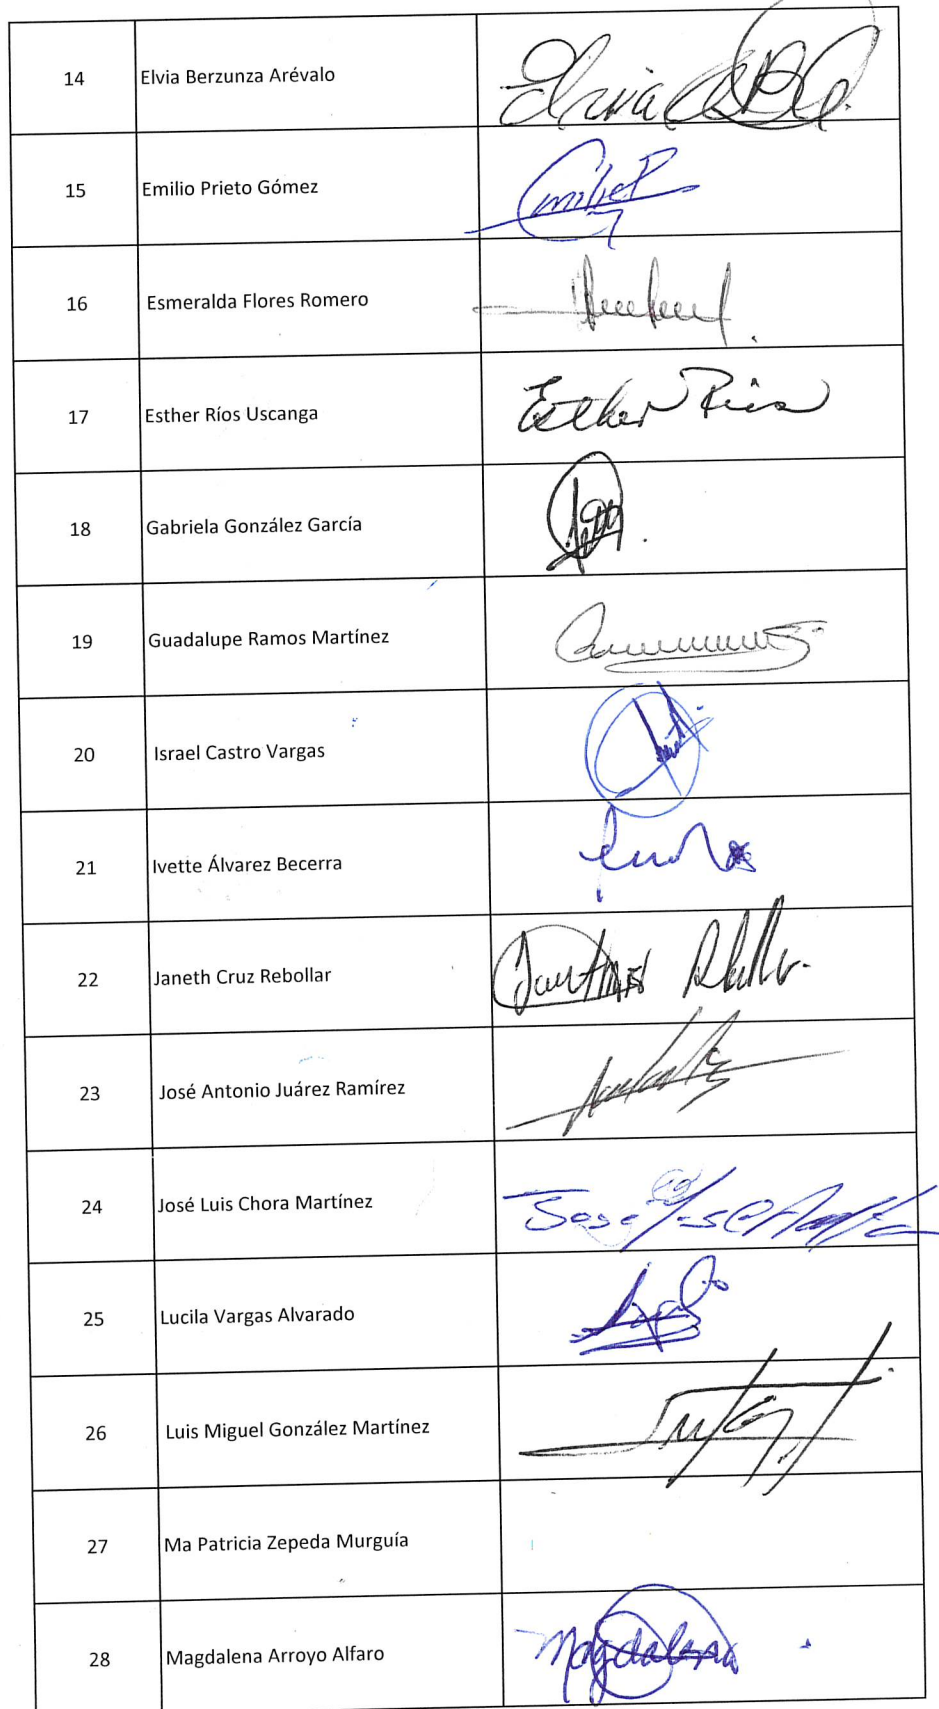 14 Elvia Berzunza Arévalo Elvia
15 Emilio Prieto Gómez Emilio P
16 Esmeralda Flores Romero
17 Esther Ríos Uscanga Esther Rios
18 Gabriela González García
19 Guadalupe Ramos Martínez
20 Israel Castro Vargas
21 Ivette Álvarez Becerra
22 Janeth Cruz Rebollar
23 José Antonio Juárez Ramírez
24 José Luis Chora Martínez Jose
25 Lucila Vargas Alvarado
26 Luis Miguel González Martínez
27 Ma Patricia Zepeda Murguía
28 Magdalena Arroyo Alfaro Magdalena